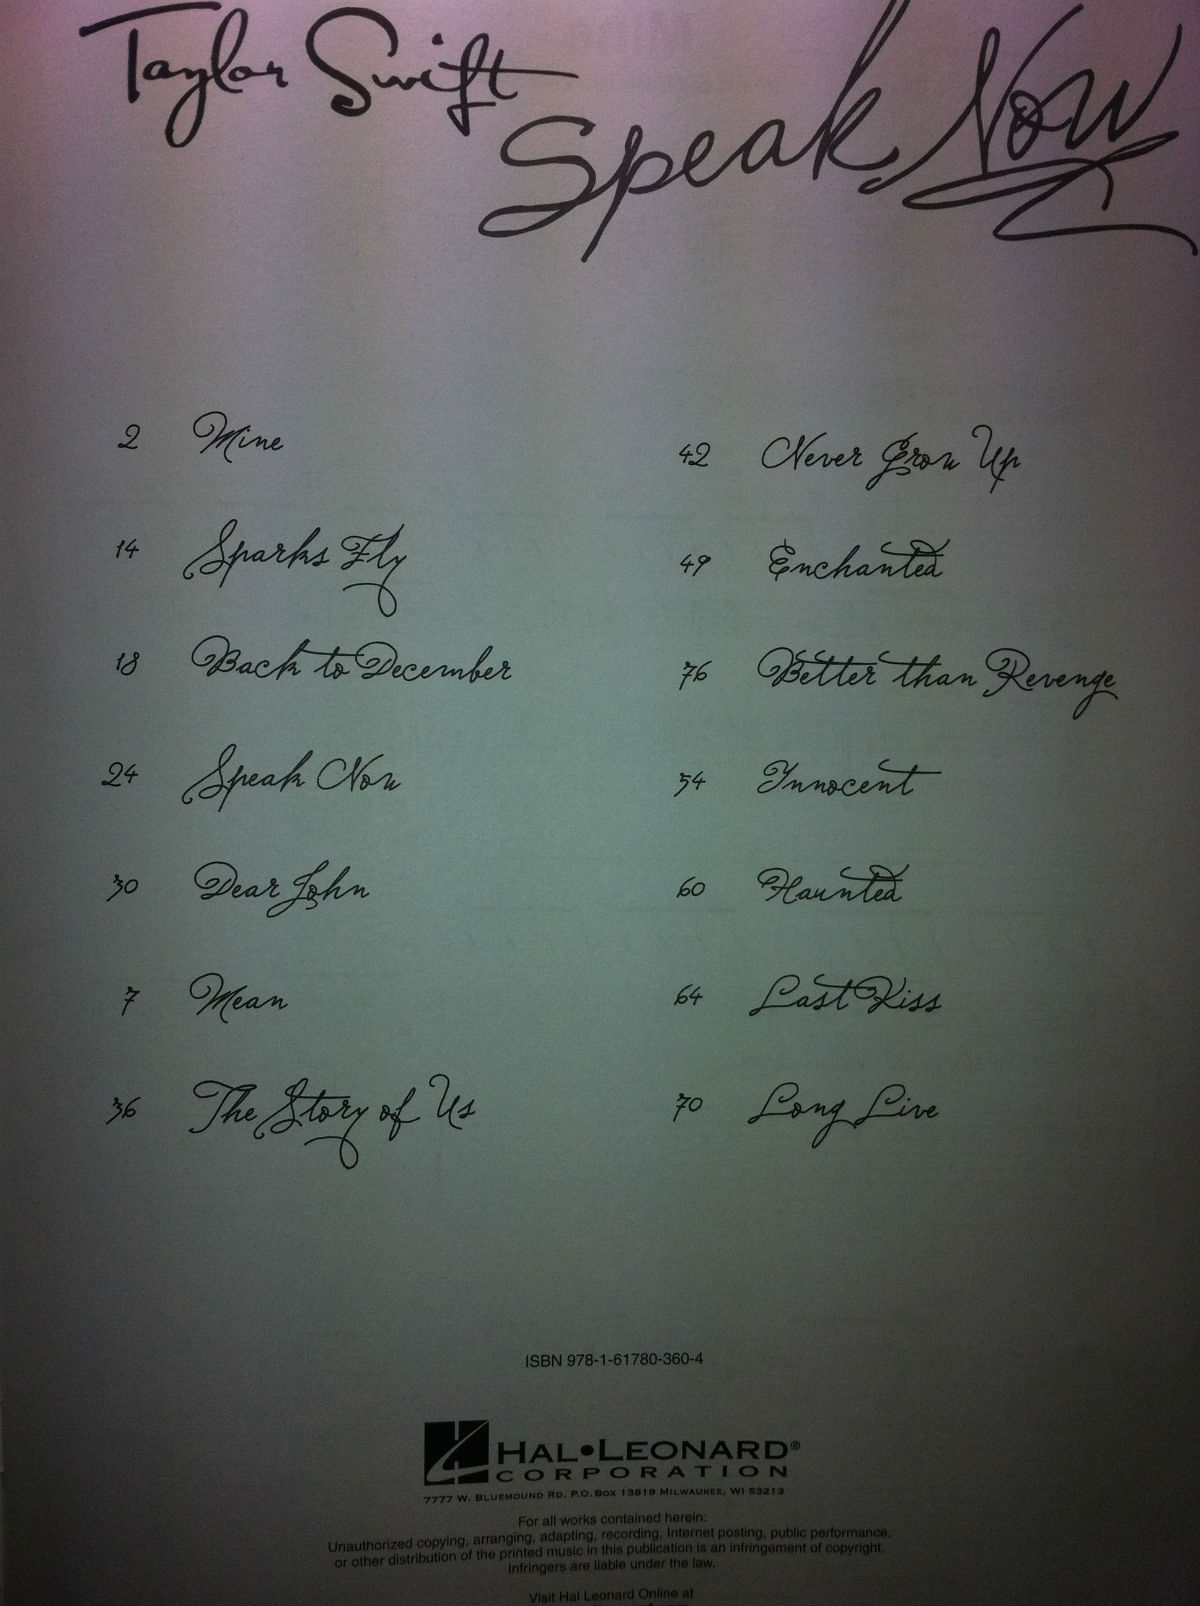 Taylor Swift
Speak Now
2 Mine
14 Sparks Fly
18 Back to December
24 Speak Now
30 Dear John
7 Mean
36 The Story of Us
42 Never Grow Up
49 Enchanted
76 Better than Revenge
54 Innocent
60 Haunted
64 Last Kiss
70 Long Live
ISBN 978-1-61780-360-4
HAL•LEONARD®
CORPORATION
7777 W. BLUEMOUND RD. P.O. BOX 13819 MILWAUKEE, WI 53213
For all works contained herein:
Unauthorized copying, arranging, adapting, recording, Internet posting, public performance,
or other distribution of the printed music in this publication is an infringement of copyright.
Infringers are liable under the law.
Visit Hal Leonard Online at